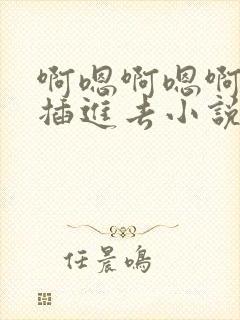 啊嗯啊嗯啊
插進去小說
任晨鳴